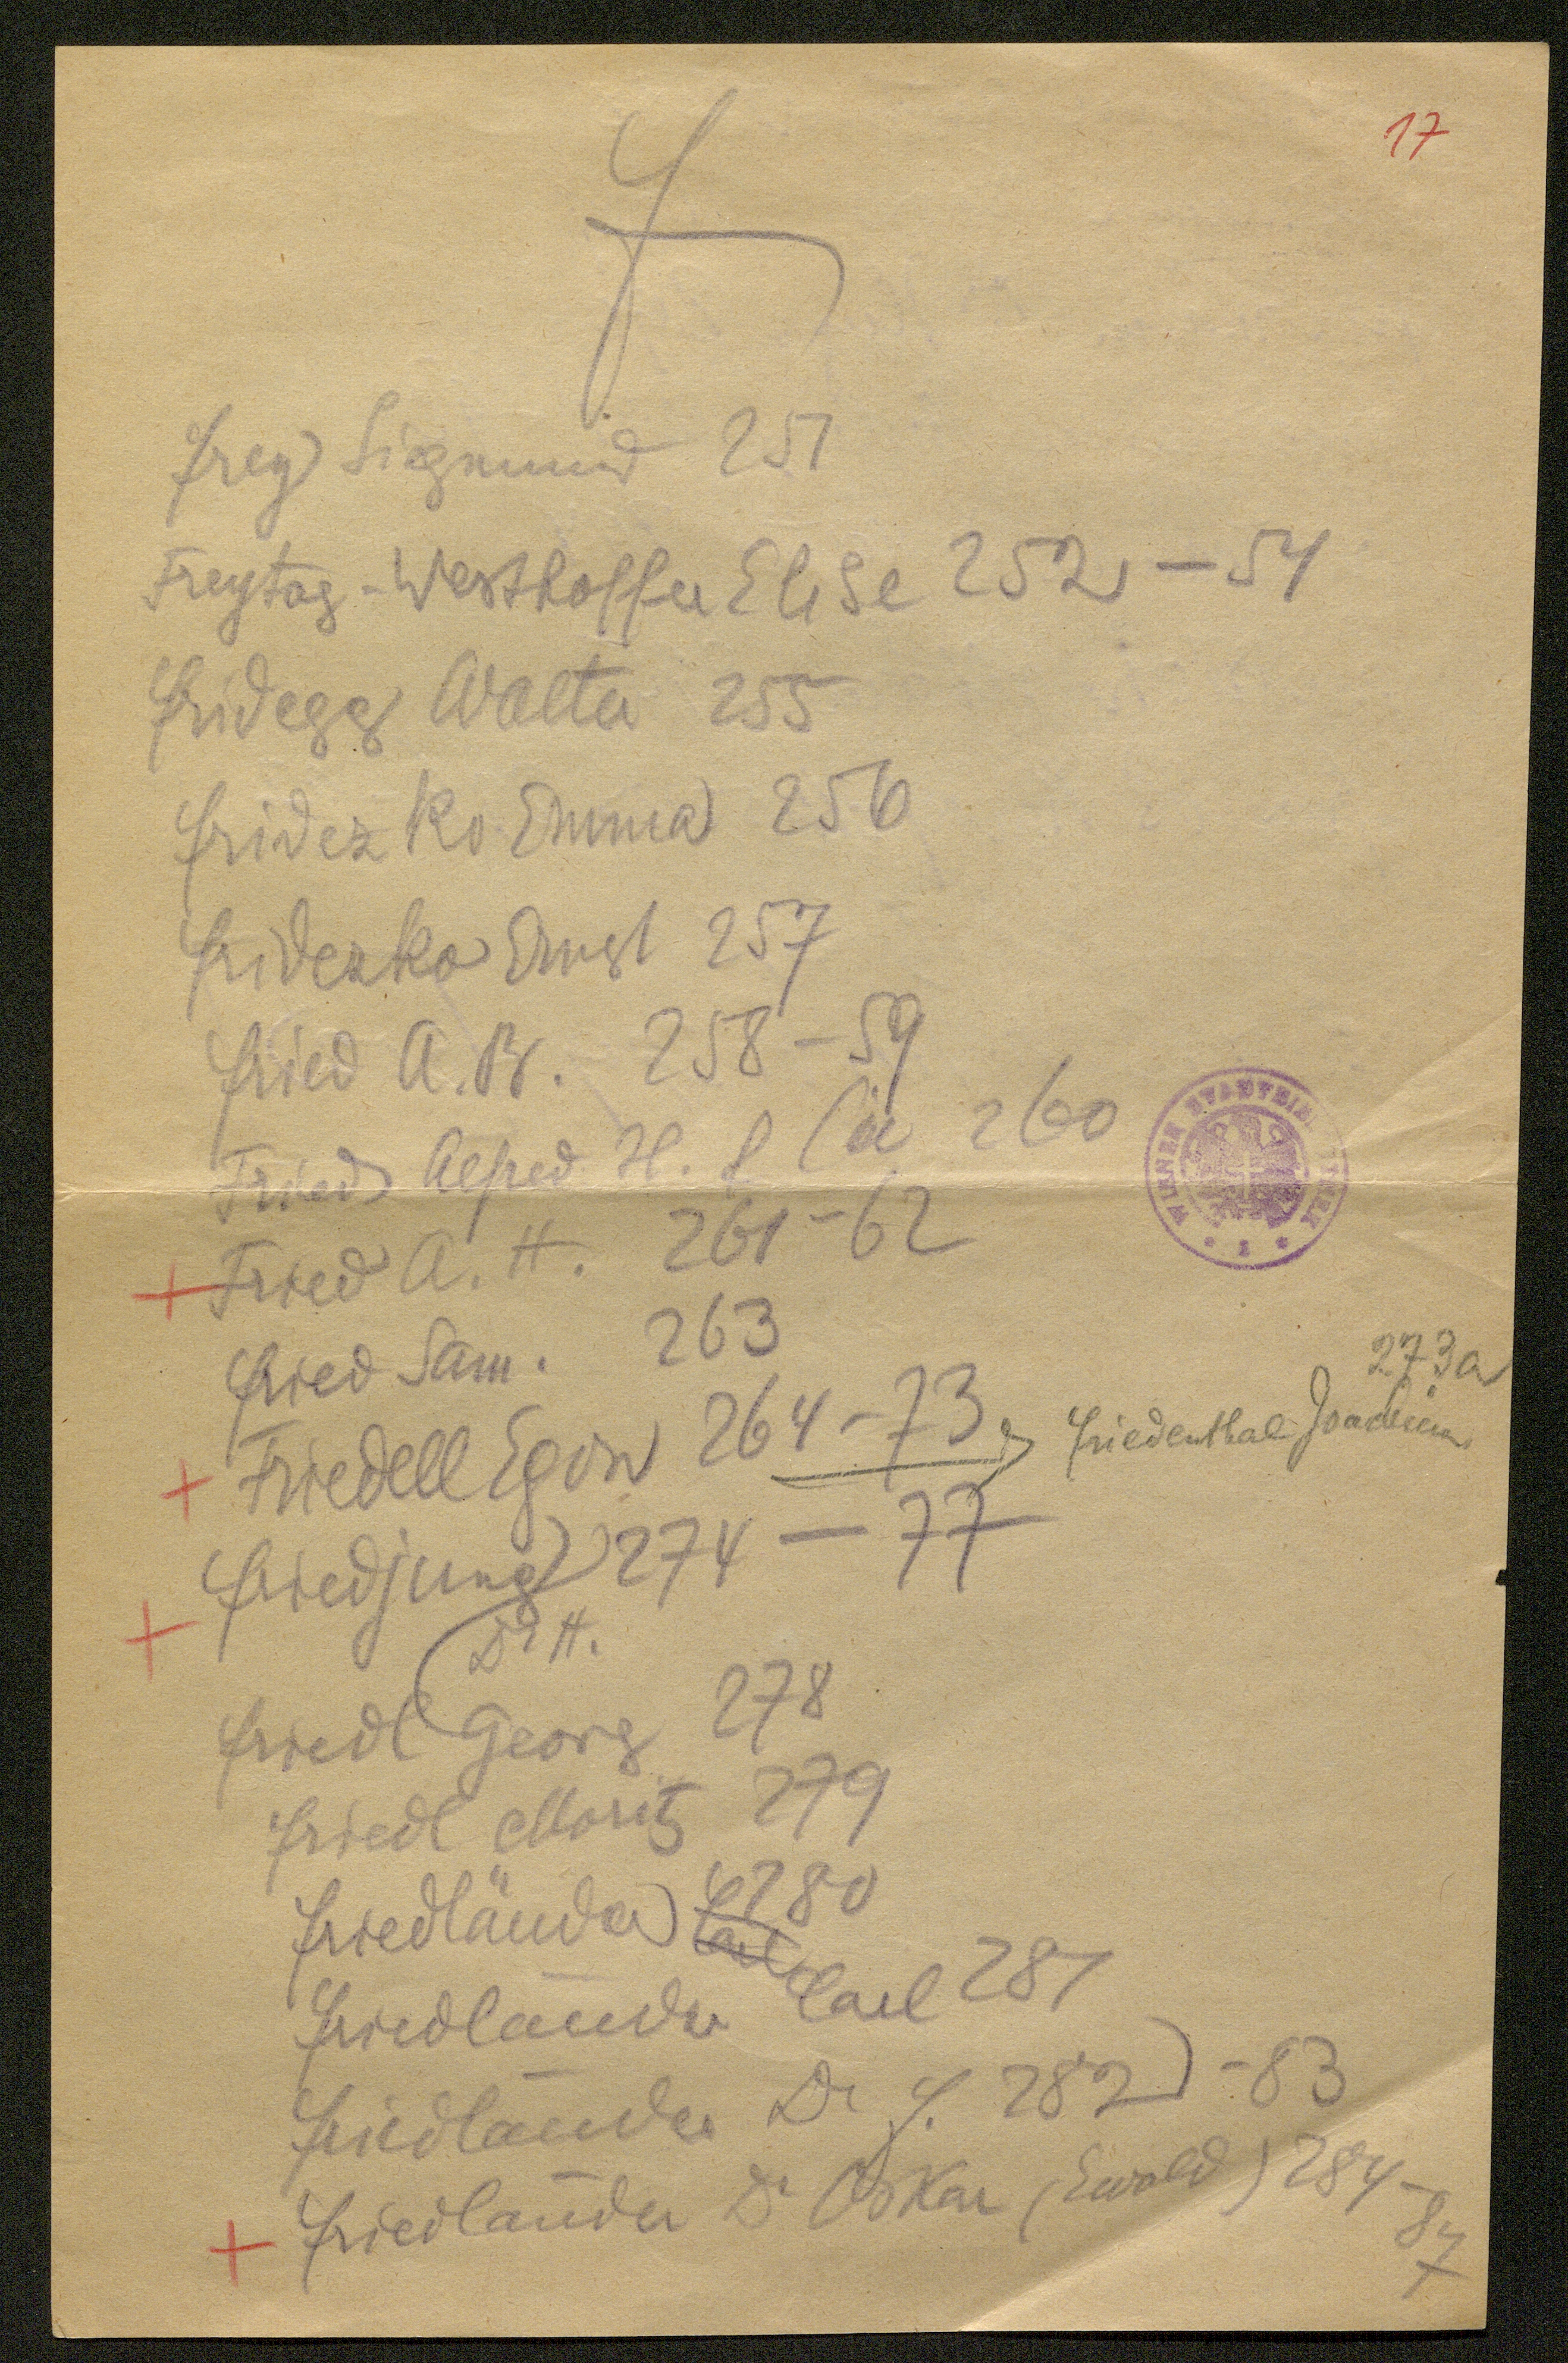 17
F
Frey Sigmund 251
Freytag-Westhoffer Elise 252-54
Fridegg Walter 255
Fridezko Emma 256
Fridezko Ernst 257
Fried A. B. 258-59
Fried Alfred H. 260
+ Fried A. H. 261-62
Fried Sam. 263
+ Friedell Egon 264-73
273a
Friedenthal Joachim
+ Friedjung 274-77
Dr H.
Friedl Georg 278
Friedl Moritz 279
Friedländer Carl 280
Friedländer Carl 281
Friedländer Dr J. 282-83
+ Friedländer Dr Oskar (Ewald) 284-87
WIENER STADTBIBLIOTHEK